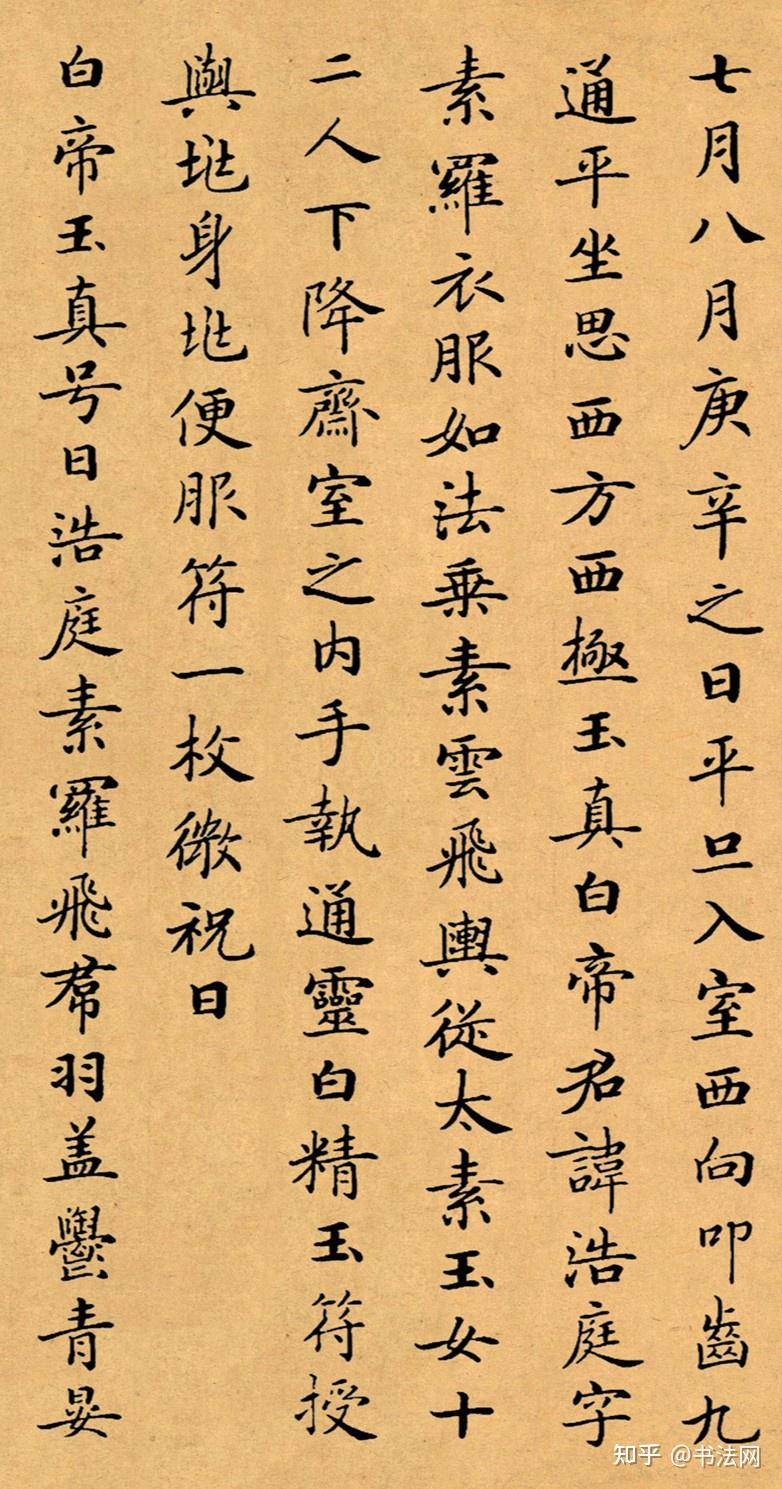 七月八月庚辛之日平旦入室西向叩齒九
通平坐思西方西極玉真白帝君諱浩庭字
素羅衣服如法乗素雲飛輿從太素玉女十
二人下降齋室之内手執通靈白精玉符授
與兆身兆便服符一枚微祝曰
白帝玉真号曰浩庭素羅飛帬羽盖鬱青晏
知乎 @书法网